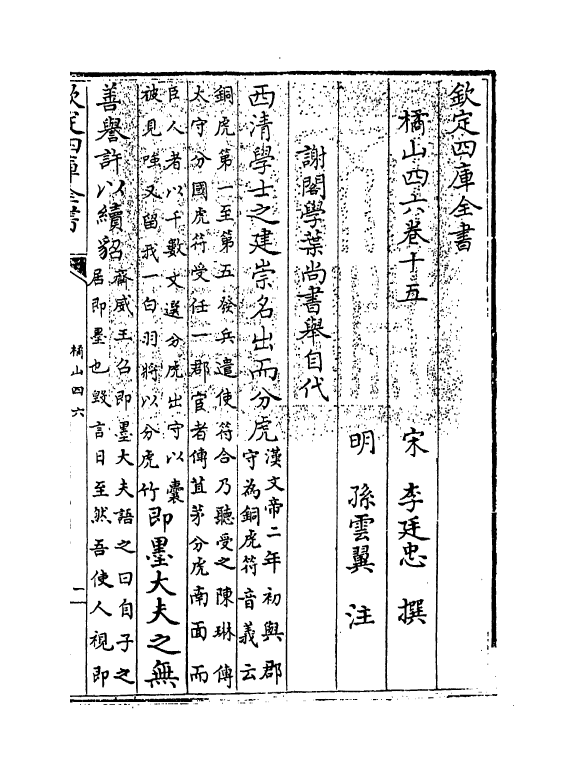 欽定四庫全書
橘山四六卷十五
宋 李廷忠 撰
明 孫雲翼 注
謝閣學葉尚書舉自代
西清學士之建崇名出而分虎漢文帝二年初與郡守為銅虎符音義云
銅虎第一至第五發兵遣使符合乃聽受之陳琳傳
太守分國虎符受任一郡官者傳苴茅分虎南面而
臣人者以千數文選分虎出守以囊
被見嗤又留我一白羽將以分虎竹即墨大夫之無
善譽許以續貂齊威王召即墨大夫語之曰自子之
居即墨也毀言日至然吾使人視即
欽定四庫全書
橘山四六
二